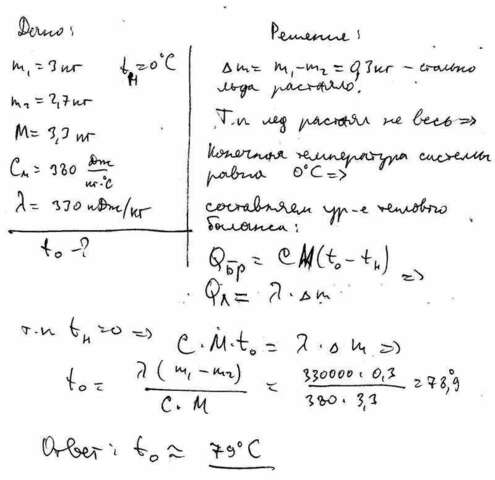 Дано:
m₁ = 3 кг t_н = 0°C
m₂ = 2,7 кг
M = 3,3 кг
C_м = 380 Дж/кг·°C
λ = 330 кДж/кг
t₀ - ?
Решение:
Δm = m₁ - m₂ = 0,3 кг - столько
льда растаяло.
Т.к лед растаял не весь =>
конечная температура системы
равна 0°C =>
составляем ур-е теплового
баланса:
Q_бр = CM(t₀ - t_н) =>
Q_л = λ · Δm
т.к t_н = 0 => C · M · t₀ = λ · Δm =>
t₀ = λ(m₁ - m₂) / C · M = 330000 · 0,3 / 380 · 3,3 = 78,9°
Ответ: t₀ ≈ 79°C